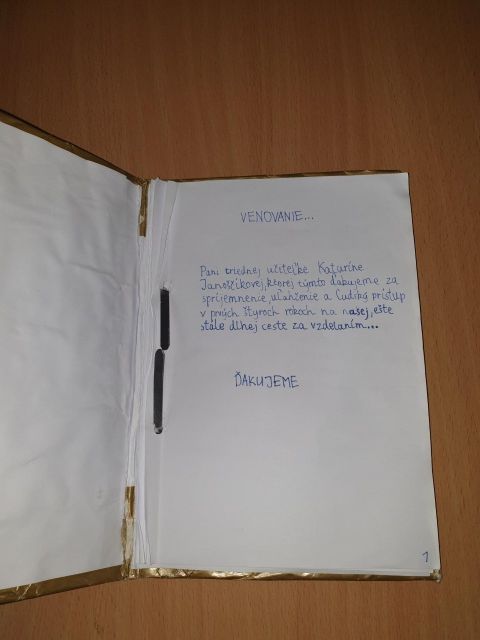 VENOVANIE...
Pani triednej učiteľke Kataríne
Janoščíkovej, ktorej týmto ďakujeme za
spríjemnenie, uľahčenie a ľudský prístup
v prvých štyroch rokoch na našej, ešte
stále dlhej ceste za vzdelaním...
ĎAKUJEME
1